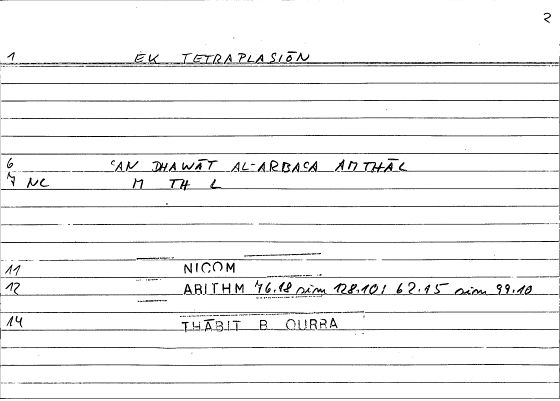 2
1 EK TETRAPLASIŌN
6 ʿAN DHAWĀT AL-ARBACA AMTHĀL
7 NC M TH L
11 NICOM
12 ARITHM 76.18 sim 128.10; 62.15 sim 99.10
14 THĀBIT B QURRA